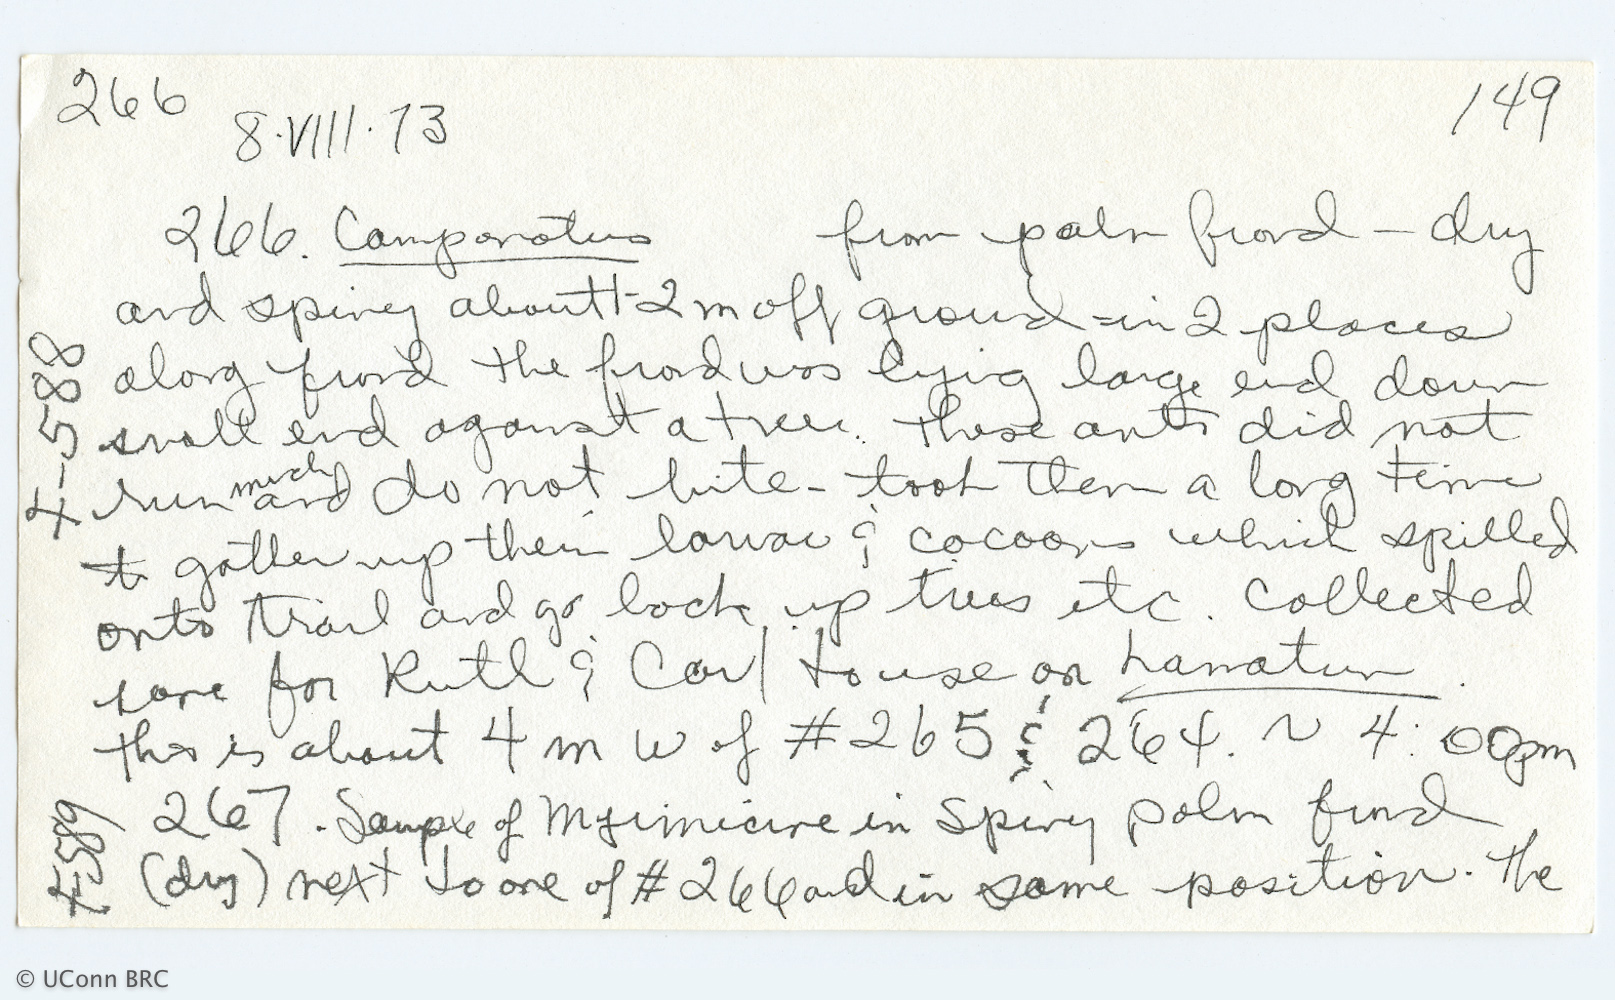 266
149
8·VIII·73
266. Camponotus from palm frond — dry
and spiney about 1-2 m off ground - in 2 places
along frond the frond was lying large end down
small end against a tree. These ants did not
run much and do not bite - took them a long time
to gather up their larvae & cocoons which spilled
onto trail and go back up trees etc. Collected
some for Ruth & Carl to use on hamatum.
this is about 4 m W of #265 & 264. ~ 4:00pm
267. Sample of Myrmicine in spiny palm frond
(dry) next to one of #266 and in same position. The
4-588
4-589
© UConn BRC